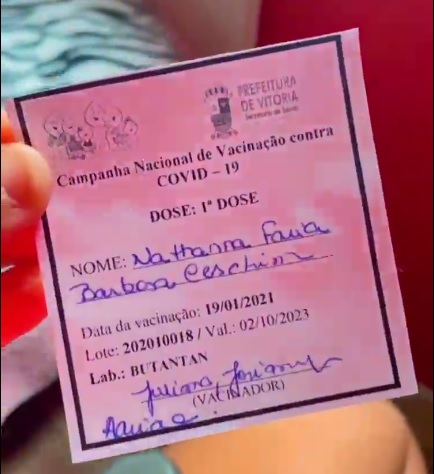 PREFEITURA
DE VITORIA
Secretaria de Saúde
Campanha Nacional de Vacinação contra
COVID – 19
DOSE: 1ª DOSE
NOME: Nathanna Faria
Barbosa Ceschim
Data da vacinação: 19/01/2021
Lote: 202010018 / Val.: 02/10/2023
Lab.: BUTANTAN
Juliana
(VACINADOR)